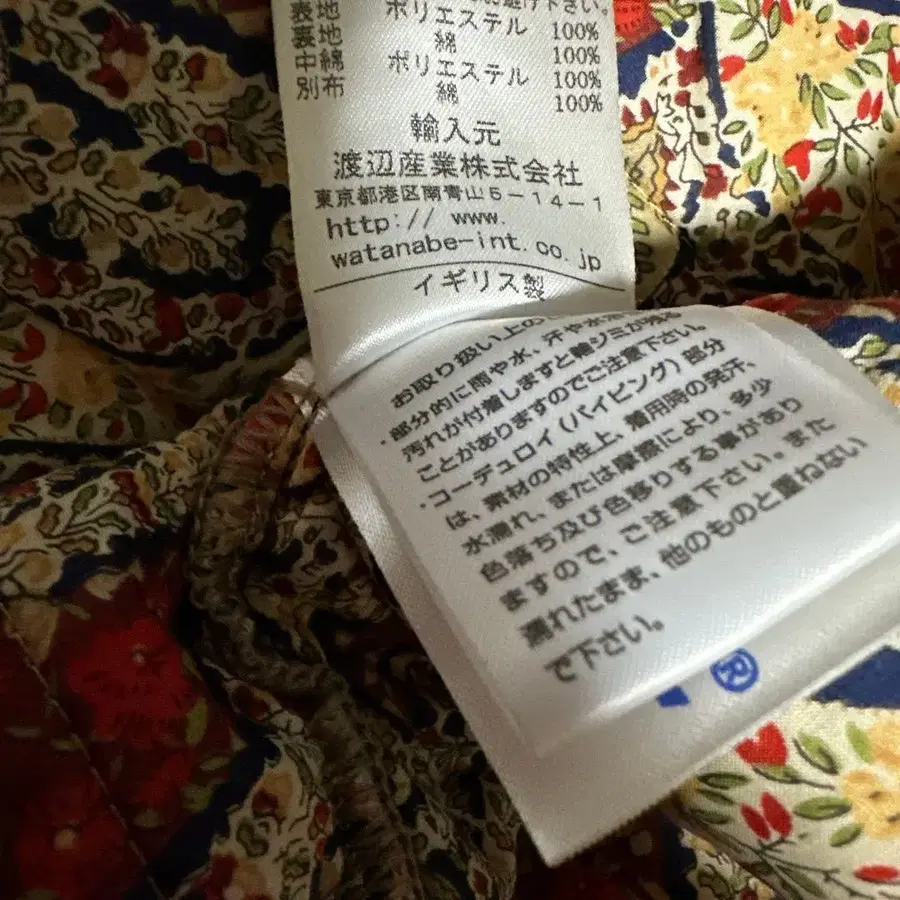 表地 ポリエステル 100%
裏地 綿 100%
中綿 ポリエステル 100%
別布 綿 100%
輸入元
渡辺産業株式会社
東京都港区南青山5-14-1
http:// www.
watanabe-int.co.jp
イギリス製
お取り扱い上の
・部分的に雨や水、汗や水
汚れが付着しますと輪ジミが
ことがありますのでご注意下さい。
・コーデュロイ(パイピング)部分
は、素材の特性上、着用時の発汗、
水濡れ、または摩擦により、多少
色落ち及び色移りする事があり
ますので、ご注意下さい。また
濡れたまま、他のものと重ねない
で下さい。
®